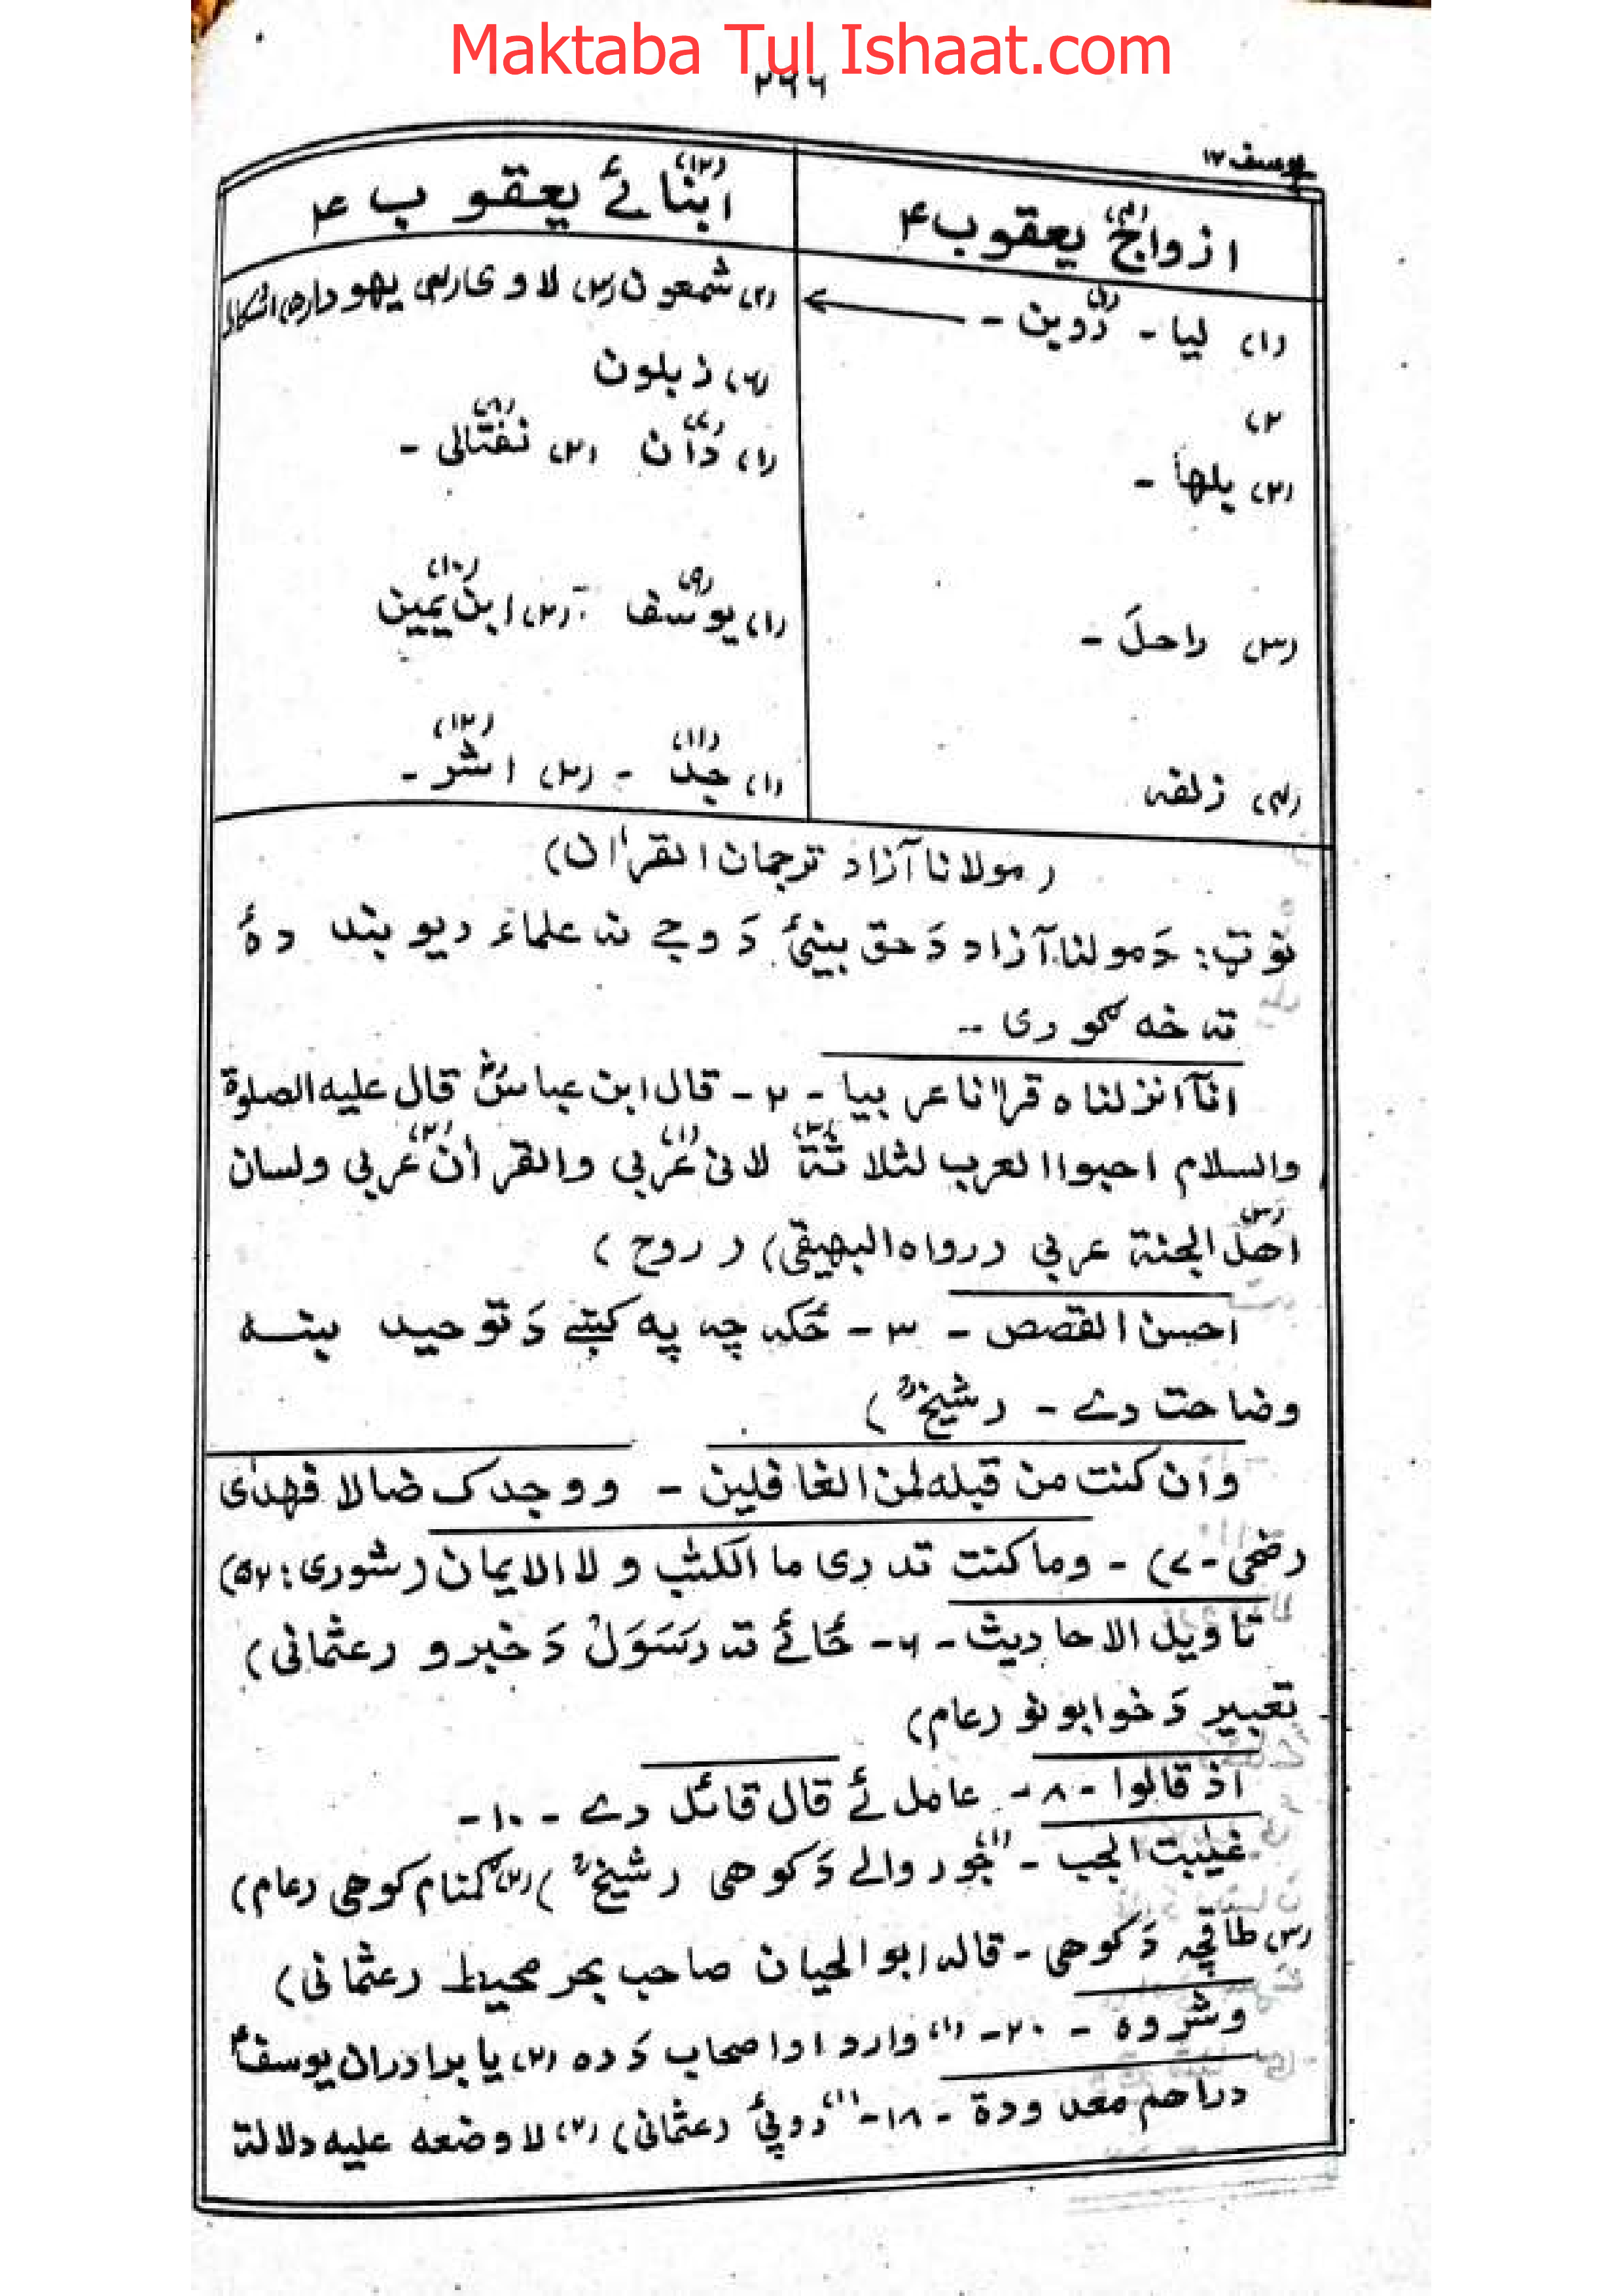 Maktaba Tul Ishaat.com
۲۶۶
یوسف ۱۲
ازواج (۴) یعقوب ۴
ابنائے (۱۲) یعقوب ۴
(۱) لیا - روبن (۱) -
(۲) شمعون (۳) لاوی (۴) یهودا (۵)
(۶) زبلون
۲)
(۲) بلها -
(۱) دان (۷) (۲) نفتالی (۸) -
(۳) راحل -
(۱) یوسف (۹) - (۲) ابن یمین (۱۰)
(۴) زلفہ
(۱) جد (۱۱) - (۲) اشر (۱۲) -
(مولانا آزاد ترجمان القرآن)
نوټ: دَ مولنا آزاد دَ حق بینئ دَ وجے نہ علماء دیوبند دهٔ
تہ خه ګوری --
انآ انزلناه قرآنا عربیا - ۲ - قال ابن عباسؓ قال علیه الصلوة
والسلام احبوا العرب لثلاثة (۳) لانی عربی (۱) والقرآن عربی (۲) ولسان
اهل الجنة (۳) عربی (رواه البهیقی) (روح)
احسن القصص - ۳ - ځکہ چہ په کښے دَ توحید ښـه
وضاحت دے - (شیخؒ)
وان کنت من قبله لمن الغافلین - ووجدک ضالا فهدٰی
(ضحی - ۷) - وما کنت تدری ما الکتٰب ولا الایمان (شوری: ۵۲)
تاویل الاحادیث - ۶ - ځائے تہ رسول دَ خبرو (عثمانی)
تعبیر دَ خوابونو (عام)
اذ قالوا - ۸ - عامل ئے قال قائل دے - ۱۰ -
غیٰبت الجب - (۱) ژور والے دَ کوهی (شیخؒ) (۲) ګمنام کوهی (عام)
(۳) طاقچہ دَ کوهی - قالہ ابو الحیان صاحب بحر محیط (عثمانی)
وشروه - ۲۰ - (۱) وارد او اصحاب دَ ده (۲) یا برادران یوسفؑ
دراهم معدودة - ۱۸ - (۱) روپئ (عثمانی) (۲) لاوضعه علیه دلالة